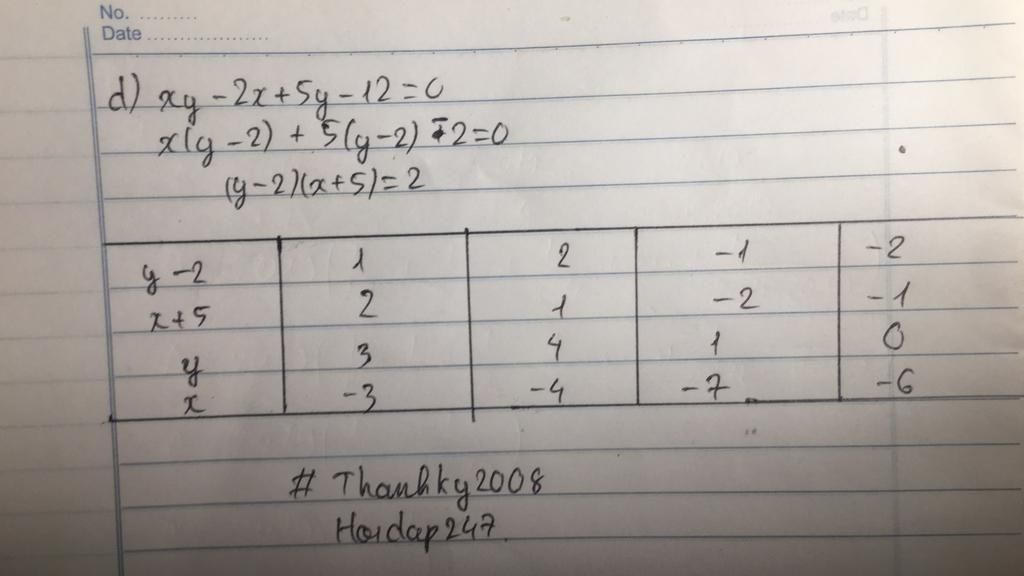 No. .........
Date ...................
d) xy - 2x + 5y - 12 = 0
x(y - 2) + 5(y - 2) - 2 = 0
(y - 2)(x + 5) = 2
y - 2 1 2 -1 -2
x + 5 2 1 -2 -1
y 3 4 1 0
x -3 -4 -7 -6
# Thanhky2008
Hoidap247.